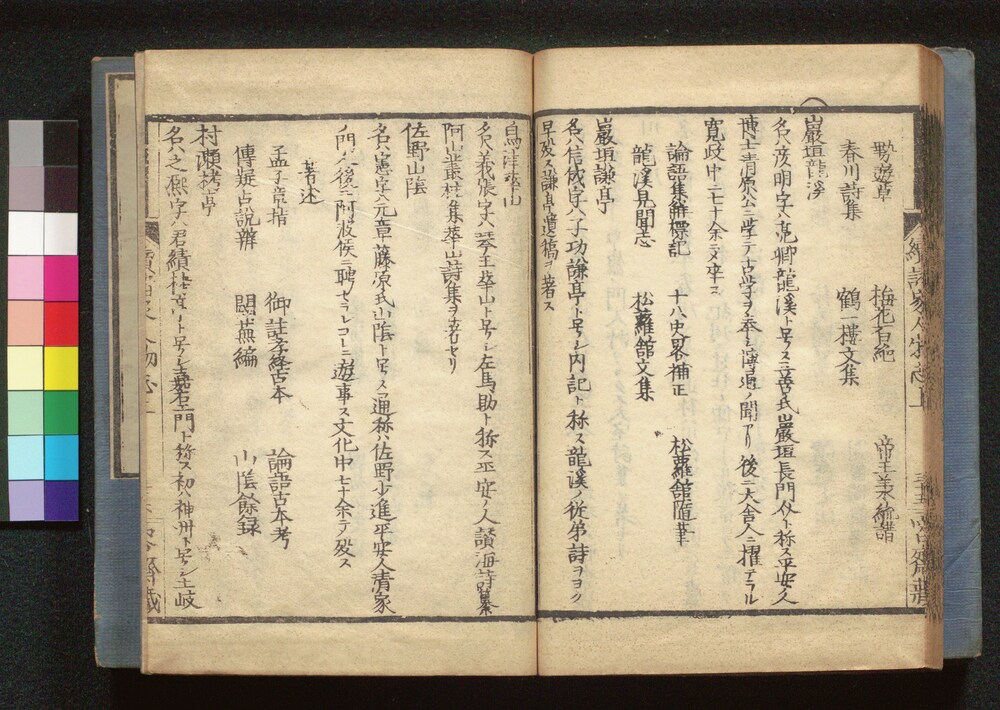 遊草 梅花百絶 帝王承統譜
春川詩集 鶴一樓文集
巖垣龍渓
名ハ彦明字ハ亮卿龍渓ト号ス三善氏巖垣長門介ト称ス平安ノ人
博士清原公ニ学テ古学ヲ奉シ博通ノ聞アリ後ニ大舎人ニ擢テラル
寛政中ニ七十余ニメ卒ス
論語集解標記 十八史畧補正 松蘿舘随筆
龍渓見聞志 松蘿舘文集
巖垣謙亭
名ハ信成字ハ子功謙亭ト号シ内記ト称ス龍渓ノ従弟詩ヲヨク
早歿ス謙亭遺稿ヲ著ス
続諸家人物志上
名ハ義張字ハ琴王華山ト号シ左馬助ト称ス平安ノ人讃海詩纂
阿山叢桂集華山詩集ヲ著セリ
佐野山陰
名ハ憲字ハ元章藤原氏山陰ト号ス通称ハ佐野少進平安人清家
門人後ニ阿波侯ニ聘セラレコヽニ遊事ス文化中七十余テ歿ス
著述
孟子章指 御註孝経古本 論語古本考
傳疑占説辨 閑燕編 山陰餘録
村瀬栲亭
名ハ之熙字ハ君績栲亭ト号シ嘉右エ門ト称ス初ハ神州ト号シ土岐